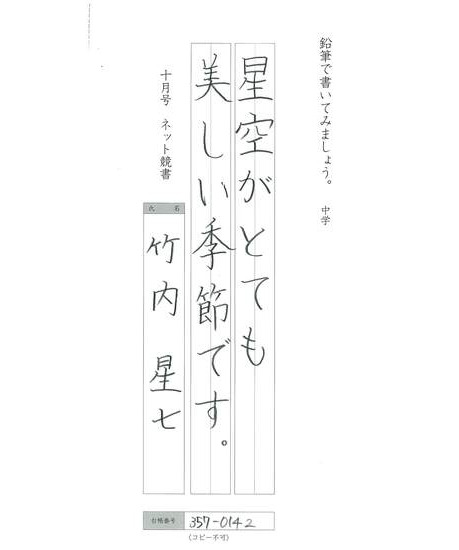 鉛筆で書いてみましょう。 中学
星空がとても
美しい季節です。
十月号 ネット競書
氏 名
竹内 星七
合格番号 357-0142
(コピー不可)